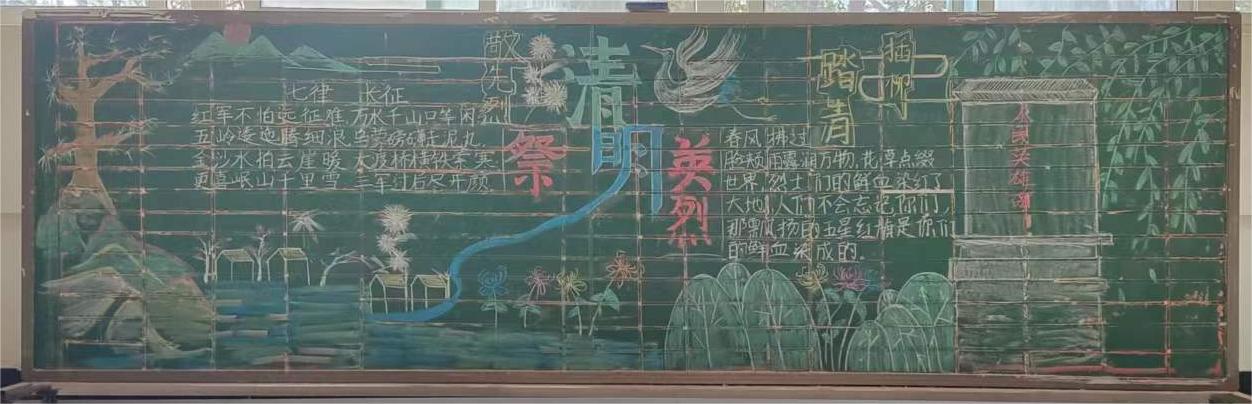 七律 长征
红军不怕远征难 万水千山口等闲
五岭逶迤腾细浪 乌蒙磅礴走泥丸.
金沙水拍云崖暖 大渡桥横铁索寒
更喜岷山千里雪 三军过后尽开颜
敬先烈
清明
祭英烈
踏青
插柳
春风拂过
脸颊,雨露润万物,花草点缀
世界,烈士们的鲜血染红了
大地,人们不会忘记你们,
那飘扬的五星红旗是你们
的鲜血染成的.
人民英雄